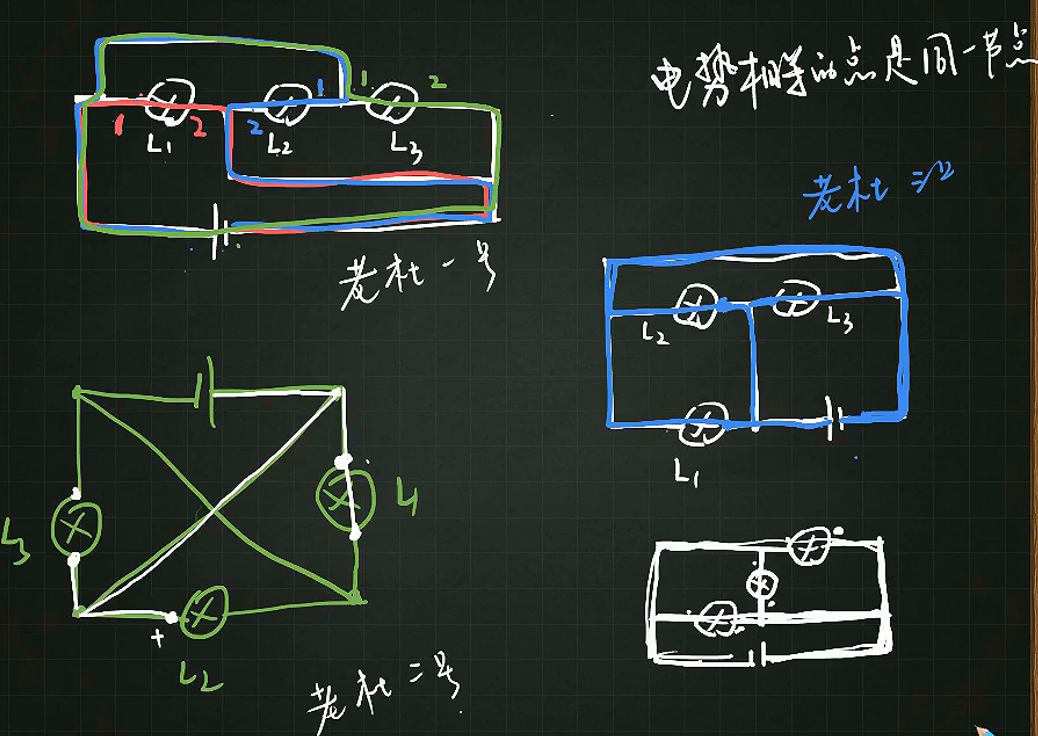 电势相等的点是同一节点
1 1 2
1 2 2
L₁ L₂ L₃
老杜一号
老杜三
L₂ L₃
L₁
L₃
L₁
+
L₂
老杜二号